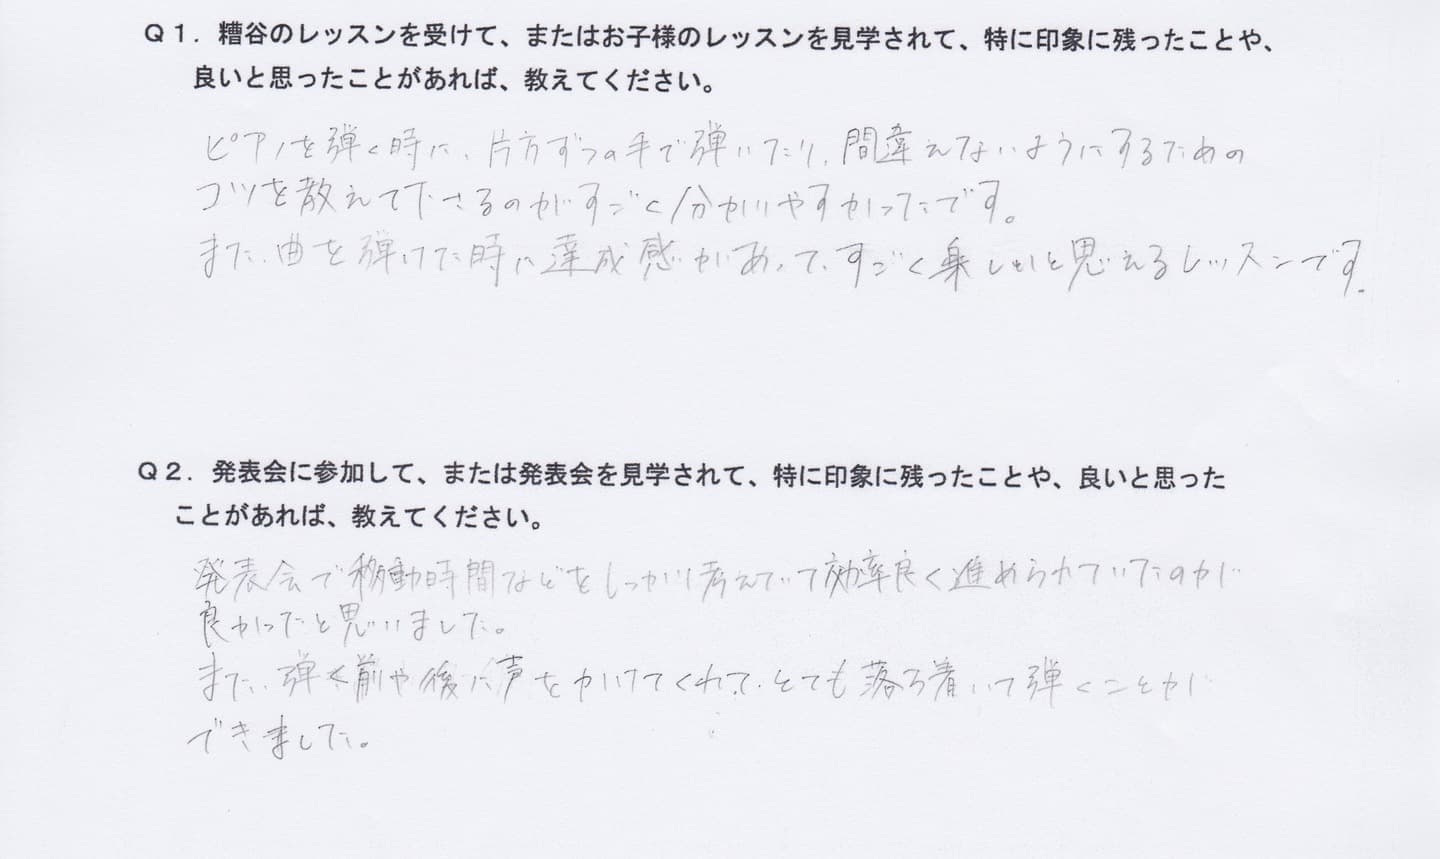 Q1. 糟谷のレッスンを受けて、またはお子様のレッスンを見学されて、特に印象に残ったことや、
良いと思ったことがあれば、教えてください。
ピアノを弾く時に、片方ずつの手で弾いたり、間違えないようにするための
コツを教えて下さるのがすごく分かりやすかったです。
また、曲を弾けた時に達成感があって、すごく楽しいと思えるレッスンです。
Q2. 発表会に参加して、または発表会を見学されて、特に印象に残ったことや、良いと思った
ことがあれば、教えてください。
発表会で移動時間などをしっかり考えていて効率良く進められていたのが
良かったと思いました。
また、弾く前や後に声をかけてくれて、とても落ち着いて弾くことが
できました。